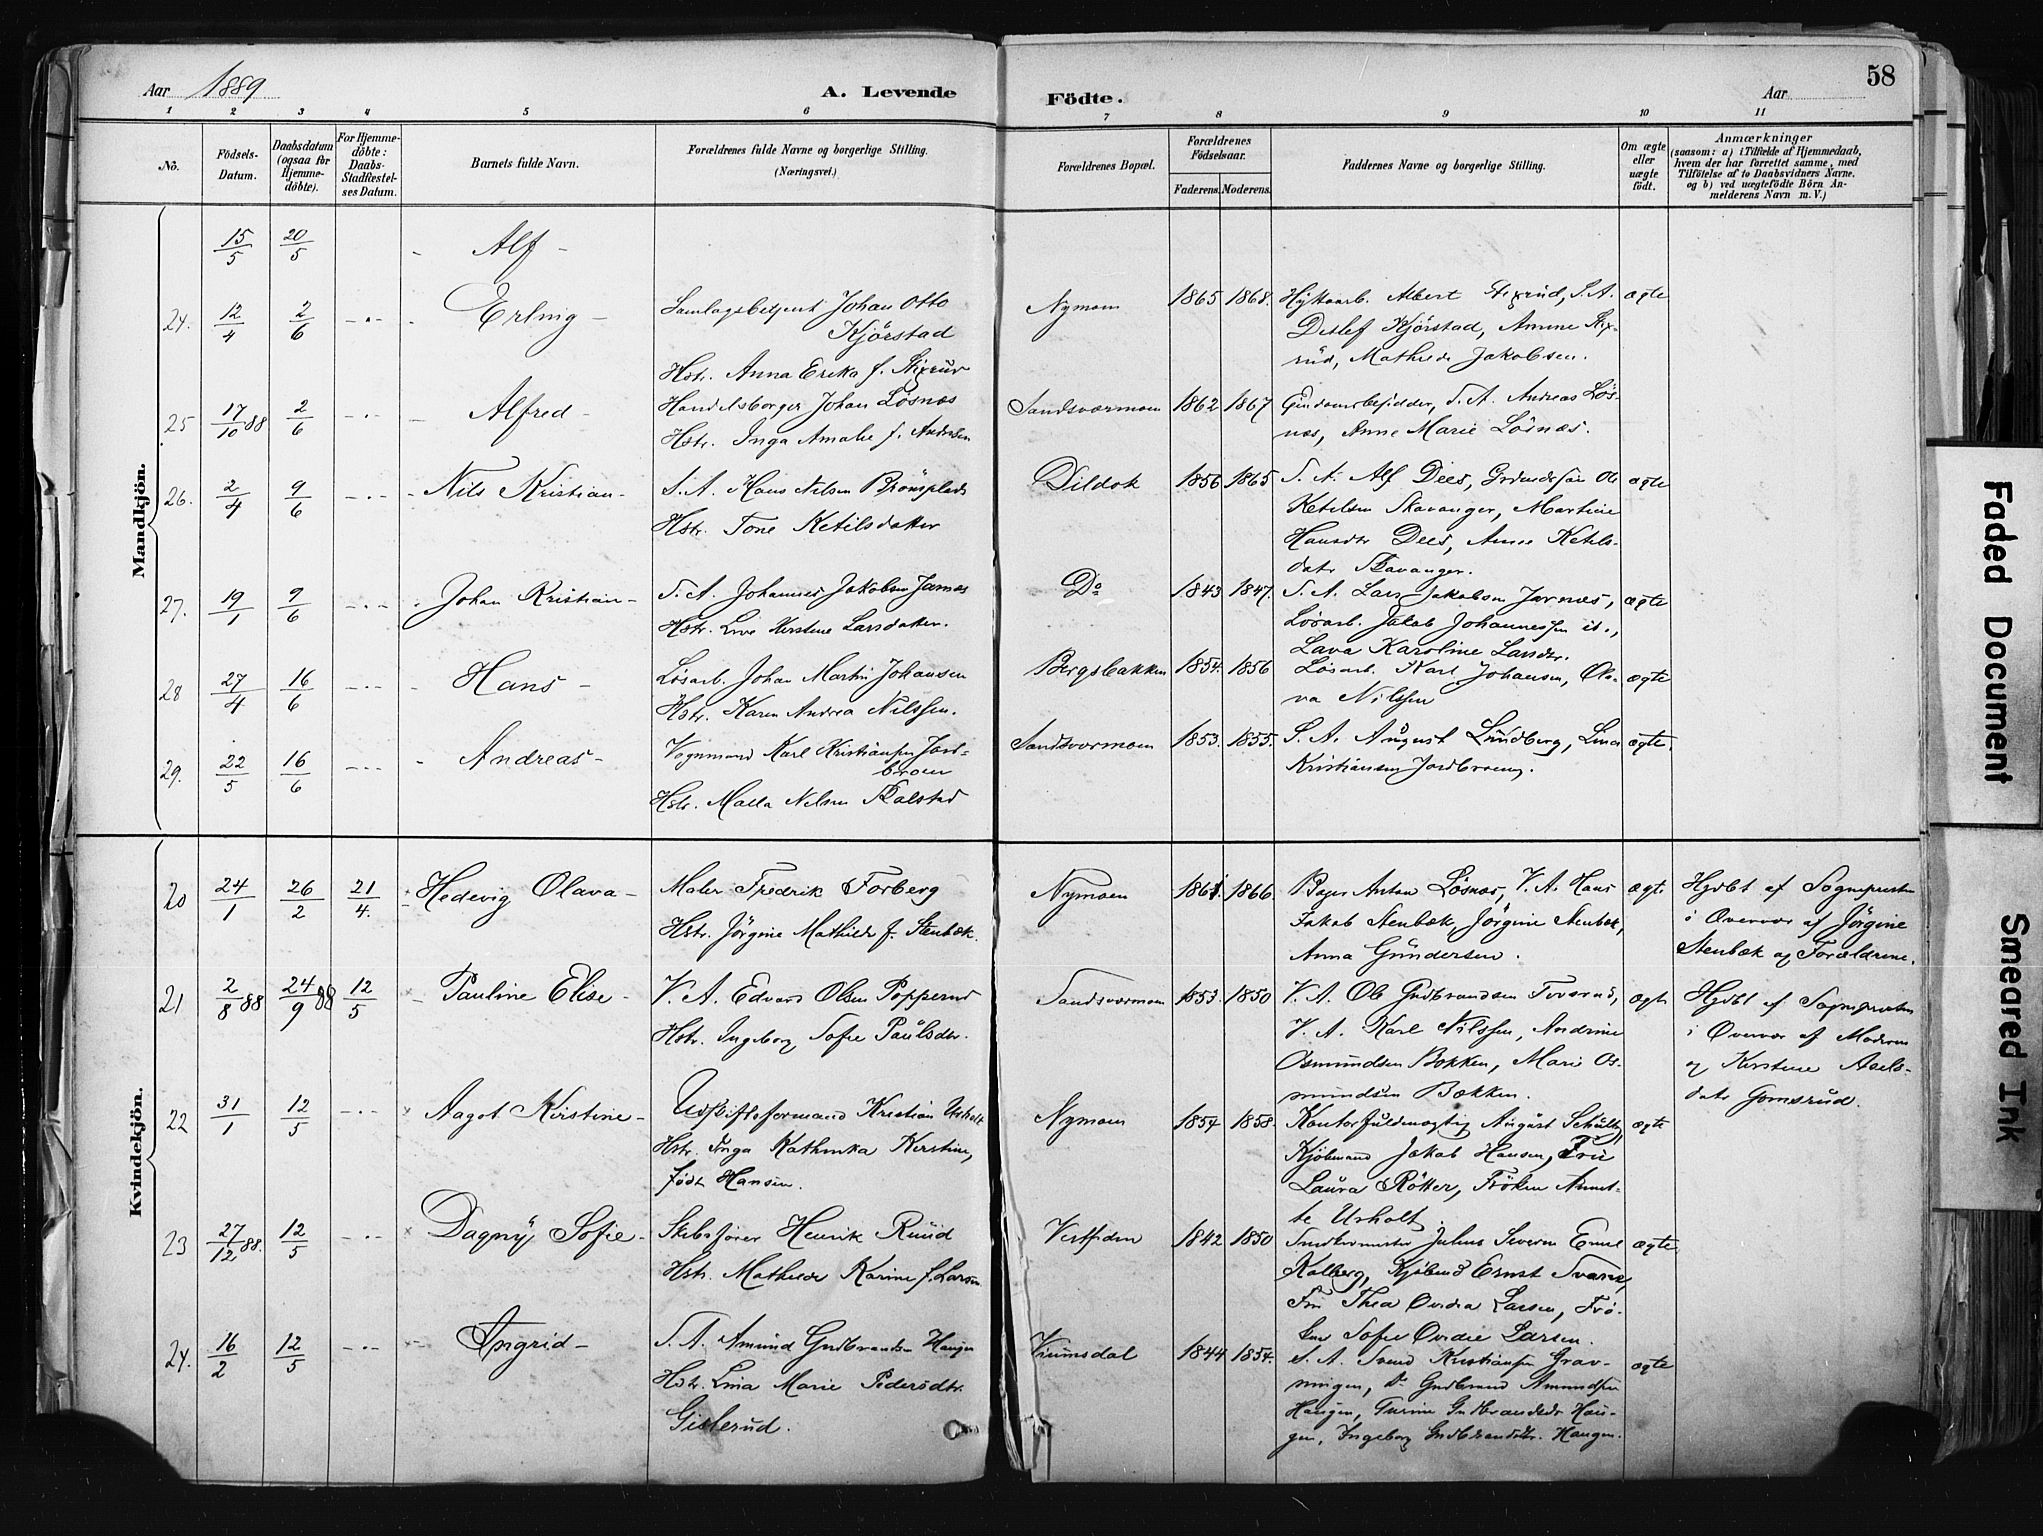 Aar 1889
A. Levende
Födte.
Aar
58
1 2 3 4 5 6 7 8 9 10 11
No.
Födsels-
Datum.
Daabsdatum
(ogsaa for
Hjemme-
döbte).
For Hjemme-
döbte:
Daabs-
Stadfæstel-
ses Datum.
Barnets fulde Navn.
Forældrenes fulde Navne og borgerlige Stilling.
(Næringsvei.)
Forældrenes Bopæl.
Forældrenes
Födselsaar.
Faderens. Moderens.
Faddernes Navne og borgerlige Stilling.
Om ægte
eller
uægte
födt.
Anmærkninger
(saasom: a) i Tilfælde af Hjemmedaab,
hvem der har forrettet samme, med
Tilföielse af to Daabsvidners Navne.
og b) ved uægtefödte Börn An-
melderens Navn m. V.)
Mandkjön.
15/5 20/5 - Alf -
24. 12/4 2/6 Erling -
Samlagsbetjent Johan Otto
Kjörstad
Hstr. Anna Erika f. Stixrud
Nymoen 1865 1868.
Hyttearb. Albert Stixrud, S. A.
Detlef Kjörstad, Anne Stix-
rud, Mathilde Jakobsen.
ægte
25 17/10 88 2/6 Alfred -
Handelsborger Johan Lösnæs
Hstr. Inga Amalie f. Andersen
Sandsværmoen 1862 1867
Eiendomsbesidder, S. A. Andreas Lös-
næs, Anne Marie Lösnæs.
26. 2/4 9/6 Nils Kristian -
S. A. Hans Nilsen Brönsplads
Hstr. Tone Ketilsdatter
Dildok 1856 1865
S. A. Alf Dees, Ole
Ketilsen Skavanger, Martine
Hansdtr Dees, Anne Ketils-
datr Skavanger.
ægte
27. 19/1 9/6 Johan Kristian -
S. A. Johannes Jakobsen Jarnæs
Hstr. Live Kerstine Larsdatter.
Do 1843 1847.
S. A. Lars Jakobsen Jarnæs,
Lösarb. Jakob Johannessen
Lava Karoline Larsdtr.
ægte
28 27/4 16/6 Hans -
Lösarb. Johan Martin Johansen
Hstr. Karen Andrea Nilssen.
Bergsbakken 1854. 1856
Lösarb. Karl Johansen, Ola-
va Nilssen
ægte
29. 22/5 16/6 Andreas -
Vognmand Karl Kristiansen Jord-
broen
Hstr. Malla Nilsen Skalstad
Sandsværmoen 1853. 1855.
S. A. August Lundberg, Lina
Kristiansen Jordbroen.
ægte.
Kvindekjön.
20 24/1 26/2 21/4. Hedevig Olava -
Maler Fredrik Forberg
Hstr. Jörgine Mathilde f. Stenbæk.
Nymoen 1861. 1866.
Bager Anton Lösnæs, V. A. Hans
Jakob Stenbæk, Jörgine Stenbæk,
Anna Gundersen.
ægt.
Hjdbt af Sognepresten
i Overvær af Jörgine
Stenbæk og Forældrene.
21 2/8 88 24/9 88 12/5 Pauline Elise -
V. A. Edvard Olsen Popperud
Hstr. Ingeborg Sofie Paulsdtr.
Sandsværmoen 1853. 1850
V. A. Ole Gudbrandsen Tvorud,
V. A. Karl Nilssen, Andrine
Osmundsen Bakken, Marie Os-
mundsen Bakken.
ægte
Hjdbt af Sognepresten
i Overvær af Moderen
og Kerstine Axels-
datr Gomsrud.
22 31/1 12/5 Aagot Kristine -
Udskifteformand Kristian Ursholt
Hstr. Inga Kathinka Kerstine,
födt Hansen.
Nymoen 1854 1858.
Kontorfuldmægtig August Schultz,
Kjöbmand Jakob Hansen, Fru
Laura Rötter, Fröken Annet-
te Ursholt
ægte
23 27/12 88. 12/5 Dagny Sofie -
Skibsförer Henrik Ruud
Hstr. Mathilde Karine f. Larsen
Vestfiden 1842 1850
Julius Severin Emil
Kolberg, Kjöbmd Ernst Svane,
Fru Thea Ovidia Larsen, Frö-
ken Sofie Ovidie Larsen.
ægte
24. 16/2 12/5 Ingrid -
S. A. Amund Gudbrandsen Haugen
Hstr. Lina Marie Pedersdtr.
Gislerud.
Viumsdal 1844 1854.
S. A. Svend Kristiansen Grav-
ningen, Do Gudbrand Amundsen
Haugen, Turine Gudbrandsdr Hau-
gen, Ingeborg Gudbrandsdtr. Haugen.
ægte
Faded Document
Smeared Ink